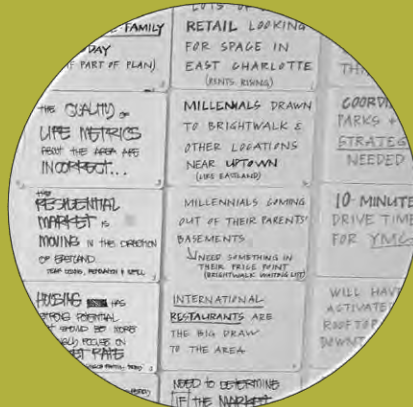 FAMILY
DAY
PART OF PLAN)
THE QUALITY OF
LIFE METRICS
ABOUT THE AREA ARE
INCORRECT...
THE
RESIDENTIAL
MARKET IS
MOVING IN THIS DIRECTION
OF EASTLAND
HOUSING HAS
STRONG POTENTIAL
SHOULD BE MORE
FOCUS ON
RATE
LOTS OF
RETAIL LOOKING
FOR SPACE IN
EAST CHARLOTTE
(RENTS RISING)
MILLENNIALS DRAWN
TO BRIGHTWALK &
OTHER LOCATIONS
NEAR UPTOWN
(LIKE EASTLAND)
MILLENNIALS COMING
OUT OF THEIR PARENTS'
BASEMENTS
NEED SOMETHING IN
THEIR PRICE POINT
(BRIGHTWALK WAITING LIST)
INTERNATIONAL
RESTAURANTS ARE
THE BIG DRAW
TO THE AREA
NEED TO DETERMINE
IF THE MARKET
COORDI
PARKS +
STRATEG
NEEDED
10-MINUTE
DRIVE TIME
FOR YMC
WILL HAV
ACTIVATE
ROOFTOP
DOWNT